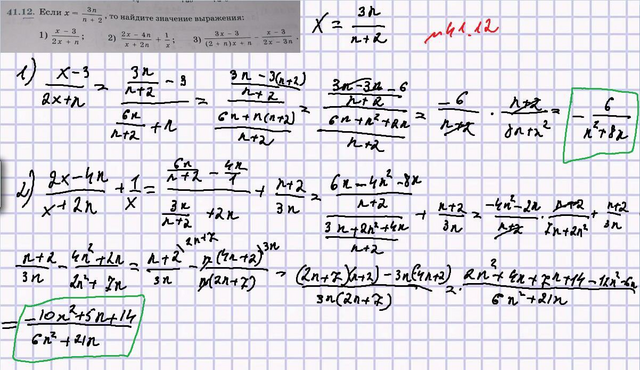 41.12. Если x = 3n/(n + 2), то найдите значение выражения:
1) (x − 3)/(2x + n); 2) (2x − 4n)/(x + 2n) + 1/x; 3) (3x − 3)/((2 + n)x + n) − (x − 3)/(2x − 3n).
x = 3n/(n+2)
№41.12
1) (x−3)/(2x+n) = (3n/(n+2) − 3)/(6n/(n+2) + n) = ((3n − 3(n+2))/(n+2))/((6n + n(n+2))/(n+2)) = ((3n − 3n − 6)/(n+2))/((6n + n² + 2n)/(n+2)) = −6/(n+2) · (n+2)/(8n+n²) = − 6/(n²+8n)
2) (2x−4n)/(x+2n) + 1/x = (6n/(n+2) − 4n/1)/(3n/(n+2) + 2n) + (n+2)/3n = ((6n − 4n² − 8n)/(n+2))/((3n + 2n² + 4n)/(n+2)) + (n+2)/3n = (−4n² − 2n)/(n+2) · (n+2)/(7n+2n²) + (n+2)/3n
(n+2)/3n − (4n²+2n)/(2n²+7n) = (n+2)/3n ^(2n+7) − n(4n+2)/n(2n+7) ^3n = ((2n+7)(n+2) − 3n(4n+2))/(3n(2n+7)) = (2n² + 4n + 7n + 14 − 12n² − 6n)/(6n² + 21n)
= (−10n² + 5n + 14)/(6n² + 21n)